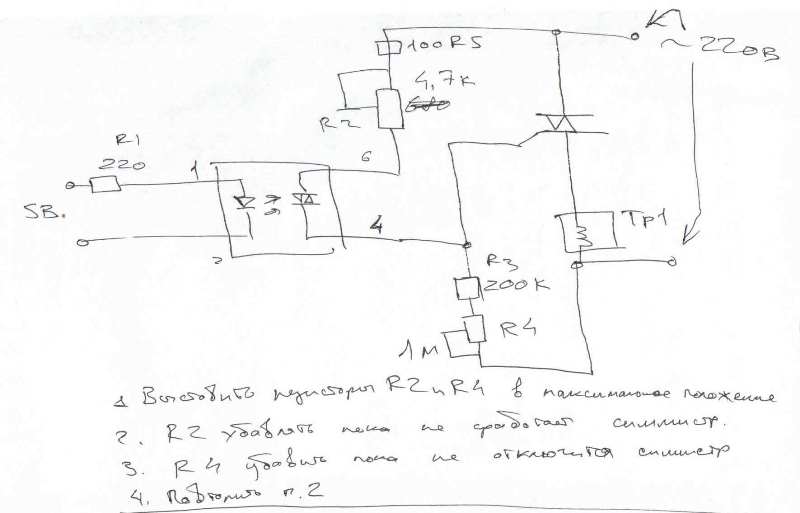 К1
~ 220В
100 R5
4,7к
R2
680
R1
220
1
6
5В.
4
2
Тр1
R3
200К
R4
1М
1 Выставить резисторы R2 и R4 в максимальное положение
2. R2 убавлять пока не сработает симмистр.
3. R4 убавить пока не отключится симистр
4. Повторить п.2